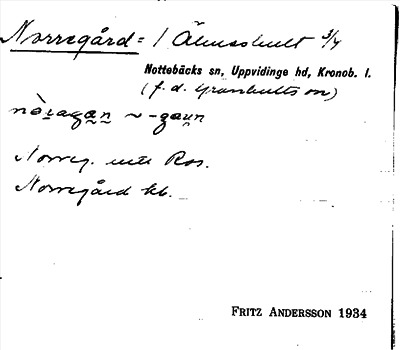 Norregård = 1 Älmeshult 3/4
Nottebäcks sn, Uppvidinge hd, Kronob. l.
(f. d. Granhults sn)
nòragan ~ -gaun
Norreg. ute Ros.
Norregård kb.
FRITZ ANDERSSON 1934